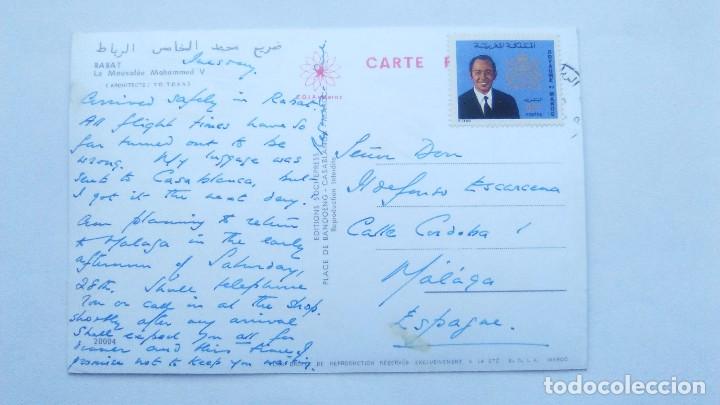 ضريح محمد الخامس الرباط
RABAT
Le Mausolée Mohammed V
(ARCHITECTE: VO TOAN)
Tuesday.
Arrived safely in Rabat.
All flight times have so
far turned out to be
wrong. My luggage was
sent to Casablanca, but
I got it the next day.
Am planning to return
to Malaga in the early
afternoon of Saturday,
28th. Shall telephone
you or call in at the shop
shortly after my arrival
Shall expect you all for
dinner and this time I
promise not to keep you waiting.
20004
EDITIONS SOCHEPRESS
PLACE DE BANDOENG - CASABLANCA
Reproduction interdite
CARTE P
المملكة المغربية
ROYAUME DU MAROC
البريد
POSTES
Señor Don
Ildefonso Escarcena
Calle Cordoba 1
Málaga
Espagne.
DE REPRODUCTION RÉSERVÉS EXCLUSIVEMENT A LA STÉ MAROC
todocoleccion.net